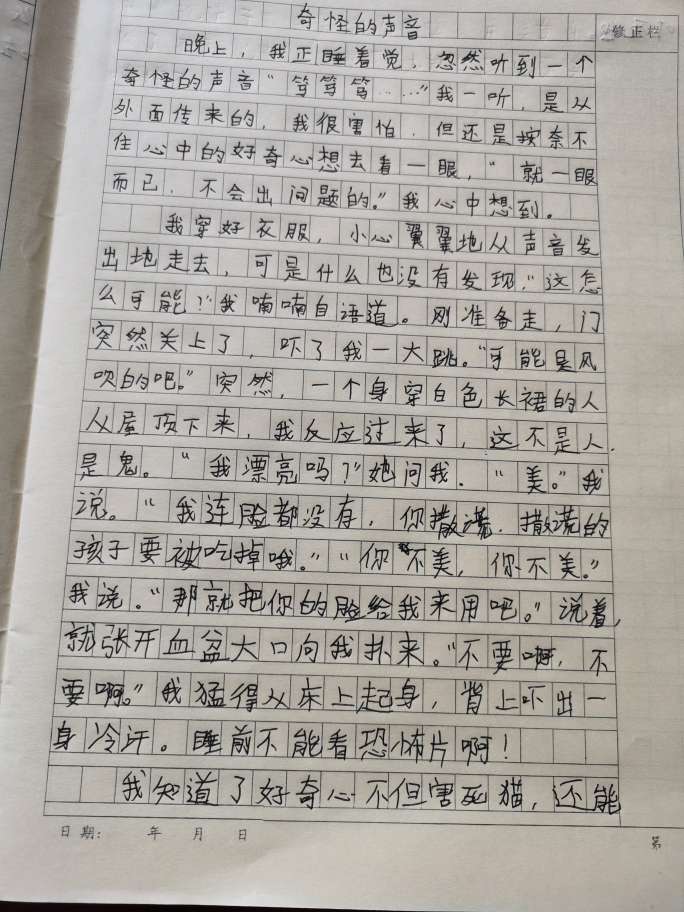 奇怪的声音
修正栏
晚上，我正睡着觉，忽然听到一个
奇怪的声音“笃笃笃……”我一听，是从
外面传来的，我很害怕，但还是按奈不
住心中的好奇心想去看一眼，“就一眼
而已，不会出问题的。”我心中想到。
我穿好衣服，小心翼翼地从声音发
出地走去，可是什么也没有发现，“这怎
么可能？”我喃喃自语道。刚准备走，门
突然关上了，吓了我一大跳。“可能是风
吹的吧。”突然，一个身穿白色长裙的人
从屋顶下来，我反应过来了，这不是人，
是鬼。“我漂亮吗？”她问我．“美。”我
说。“我连脸都没有，你撒谎，撒谎的
孩子要被吃掉哦。”“你不美，你不美。”
我说。“那就把你的脸给我来用吧。”说着，
就张开血盆大口向我扑来。“不要啊，不
要啊。”我猛得从床上起身，背上吓出一
身冷汗。睡前不能看恐怖片啊！
我知道了好奇心不但害死猫，还能
日期： 年 月 日
第